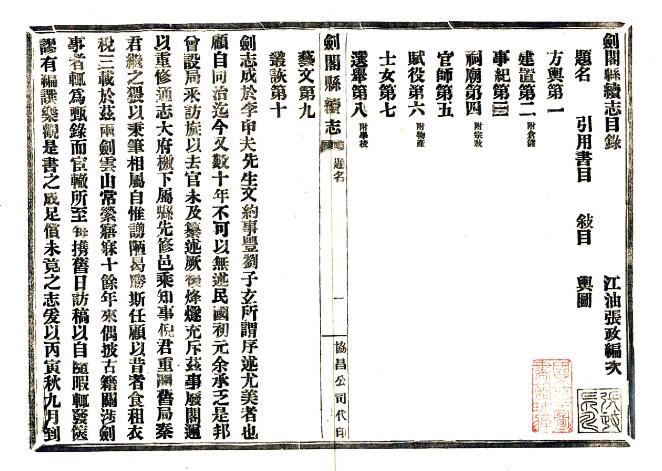 劍閣縣續志目錄
江油張政編次
題名 引用書目 敍目 輿圖
方輿第一
建置第二 附倉儲
事紀第三
祠廟第四 附宗敎
官師第五
賦役第六 附物產
士女第七
選舉第八 附學校
藝文第九
叢談第十
劍閣縣續志
題名
一
協昌公司代印
劍志成於李申夫先生文約事豐劉子玄所謂序述尤美者也
顧自同治迄今又數十年不可以無述民國初元余承乏是邦
曾設局采訪旋以去官未及纂述厥後烽燧充斥茲事廢閣邇
以重修通志大府檄下屬縣先修邑乘知事倪君重開舊局秦
君繼之猥以秉筆相屬自惟謭陋曷勝斯任顧以昔者食租衣
稅三載於茲兩劍雲山常縈寤寐十餘年來偶披古籍關涉劍
事者輒爲甄錄而宦轍所至每携舊日訪稿以自隨暇輒發篋
謬有編譔樂觀是書之成足償未竟之志爰以丙寅秋九月到